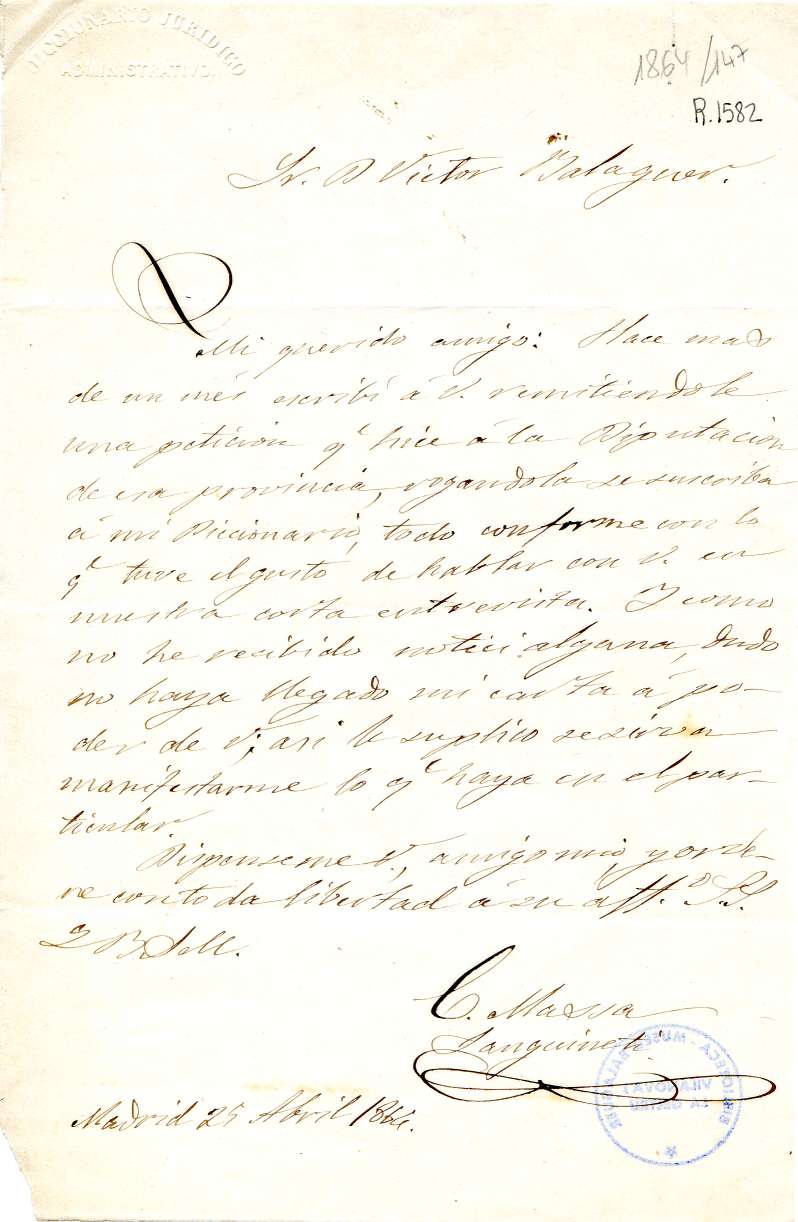 DICCIONARIO JURIDICO
ADMINISTRATIVO.
1864/147
R.1582
Sr. D Victor Balaguer.
Mi querido amigo: Hace mas
de un més escribí á V. remitiendole
una peticion qe hice á la Diputacion
de esa provincia, rogandola se suscriba
á mi Diccionario, todo conforme con lo
qe tuve el gusto de hablar con V. en
nuestra corta entrevista. Y como
no he recibido notici alguna, dudo
no haya llegado mi carta á po-
der de V; asi le suplico se sirva
manifestarme lo qe haya en el par-
ticular.
Dispenseme V., amigo mio, y orde-
ne con toda libertad á su aff.o S.S.
Q B S M.
C. Massa
Sanguineti
Madrid 25 Abril 1864.
BIBLIOTECA - MUSEU BALAGUER
VILANOVA I
LA GELTRÚ